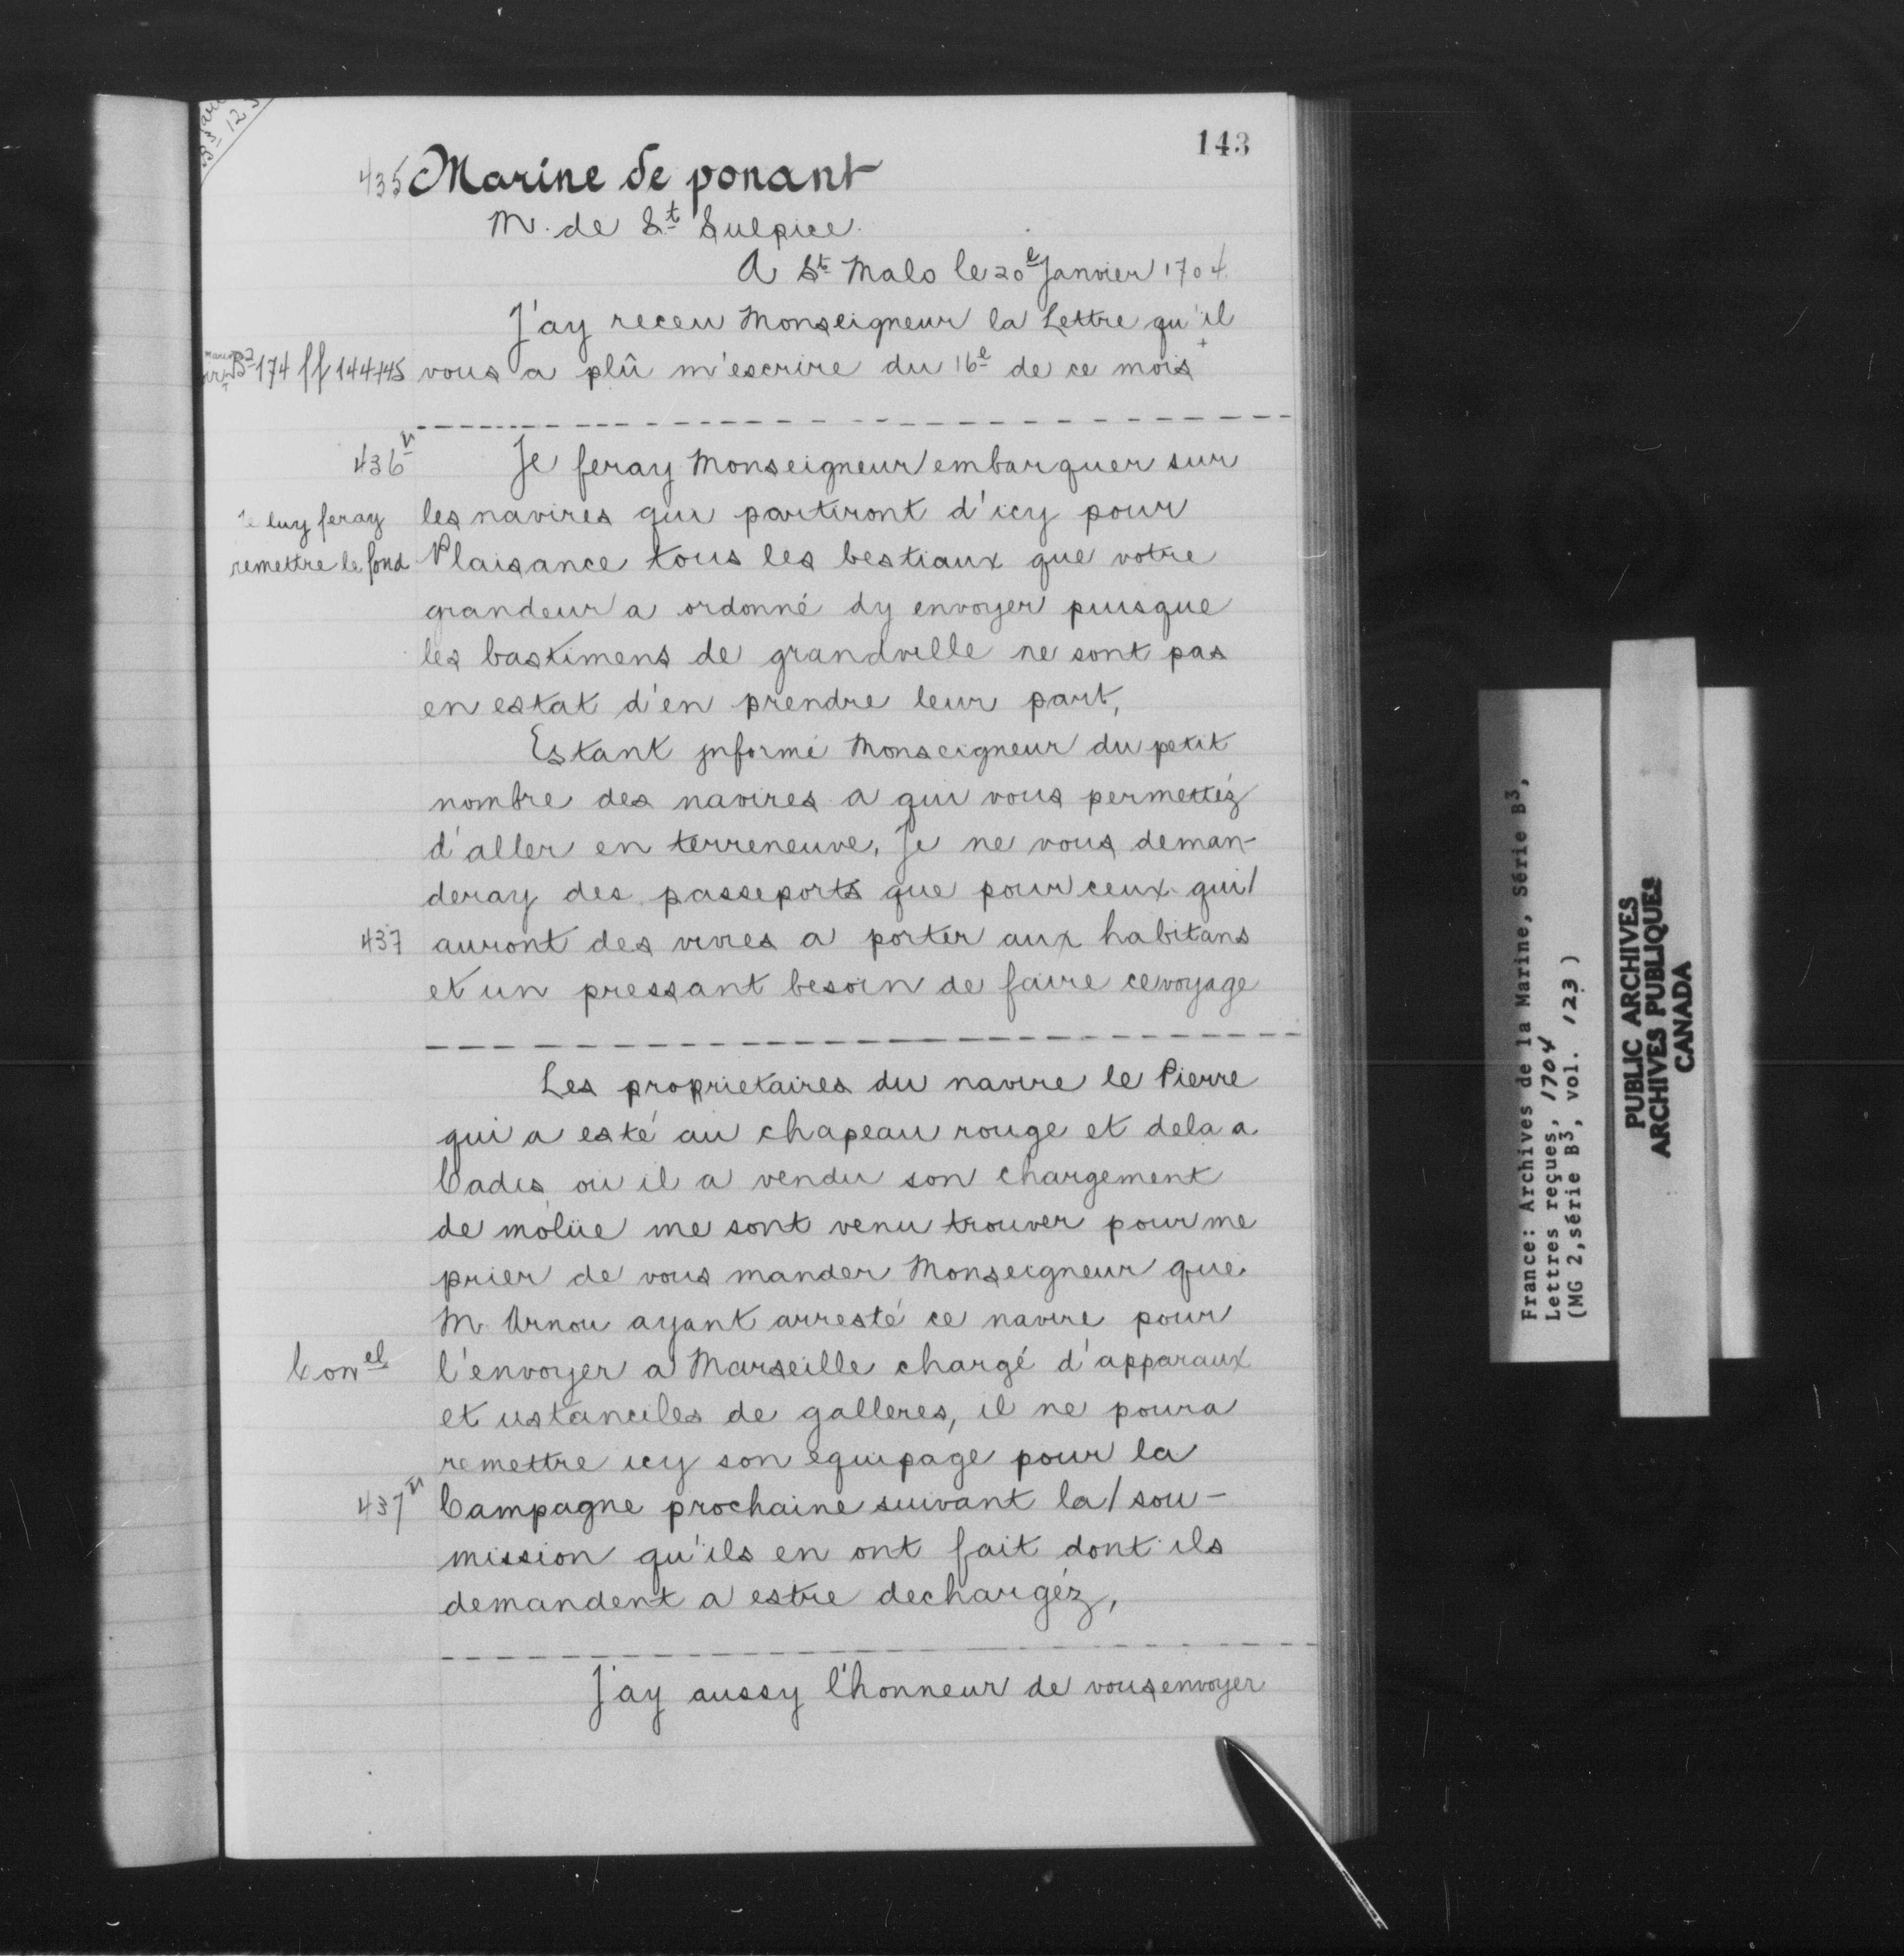 143
B3 123
435 Marine de ponant
M. de St Sulpice.
A St Malo le 20e Janvier 1704.
J'ay receu Monseigneur la Lettre qu'il
B2 174 ff 144+45 vous a plû m'escrire du 16e de ce mois +
436v Je feray Monseigneur embarquer sur
Je luy feray les navires qui partiront d'icy pour
remettre le fond Plaisance tous les bestiaux que votre
grandeur a ordonné dy envoyer puisque
les bastimens de grandville ne sont pas
en estat d'en prendre leur part,
Estant jnformé Monseigneur du petit
nombre des navires a qui vous permettéz
d'aller en terreneuve, Je ne vous deman-
deray des passeports que pour ceux qui/
437 auront des vivres a porter aux habitans
et un pressant besoin de faire ce voyage
Les proprietaires du navire le Pierre
qui a esté au chapeau rouge et dela a
Cadis ou il a vendu son chargement
de molüe me sont venu trouver pour me
prier de vous mander Monseigneur que
M. Arnou ayant arresté ce navire pour
Conel l'envoyer a Marseille chargé d'apparaux
et ustanciles de galleres, il ne poura
remettre icy son equipage pour la
437v Campagne prochaine suivant la / sou-
mission qu'ils en ont fait dont ils
demandent a estre dechargéz,
J'ay aussy l'honneur de vous envoyer
France: Archives de la Marine, Série B3,
Lettres reçues, 1704
(MG 2, série B3, vol. 123)
PUBLIC ARCHIVES
ARCHIVES PUBLIQUES
CANADA